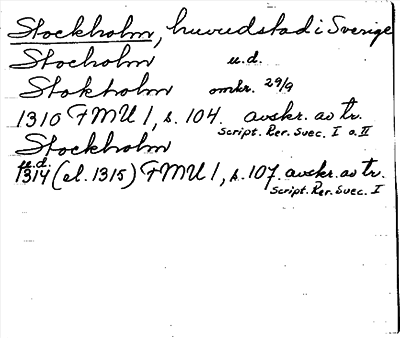 Stockholm, huvudstad i Sverige
Stocholm u.d.
Stokholm omkr. 29/9
1310 FMU 1, s. 104. avskr. av tr.
Script. Rer. Suec. I o. II
Stockholm
u.d.
1314 (el. 1315) FMU 1, s. 107. avskr. av tr.
Script. Rer. Suec. I